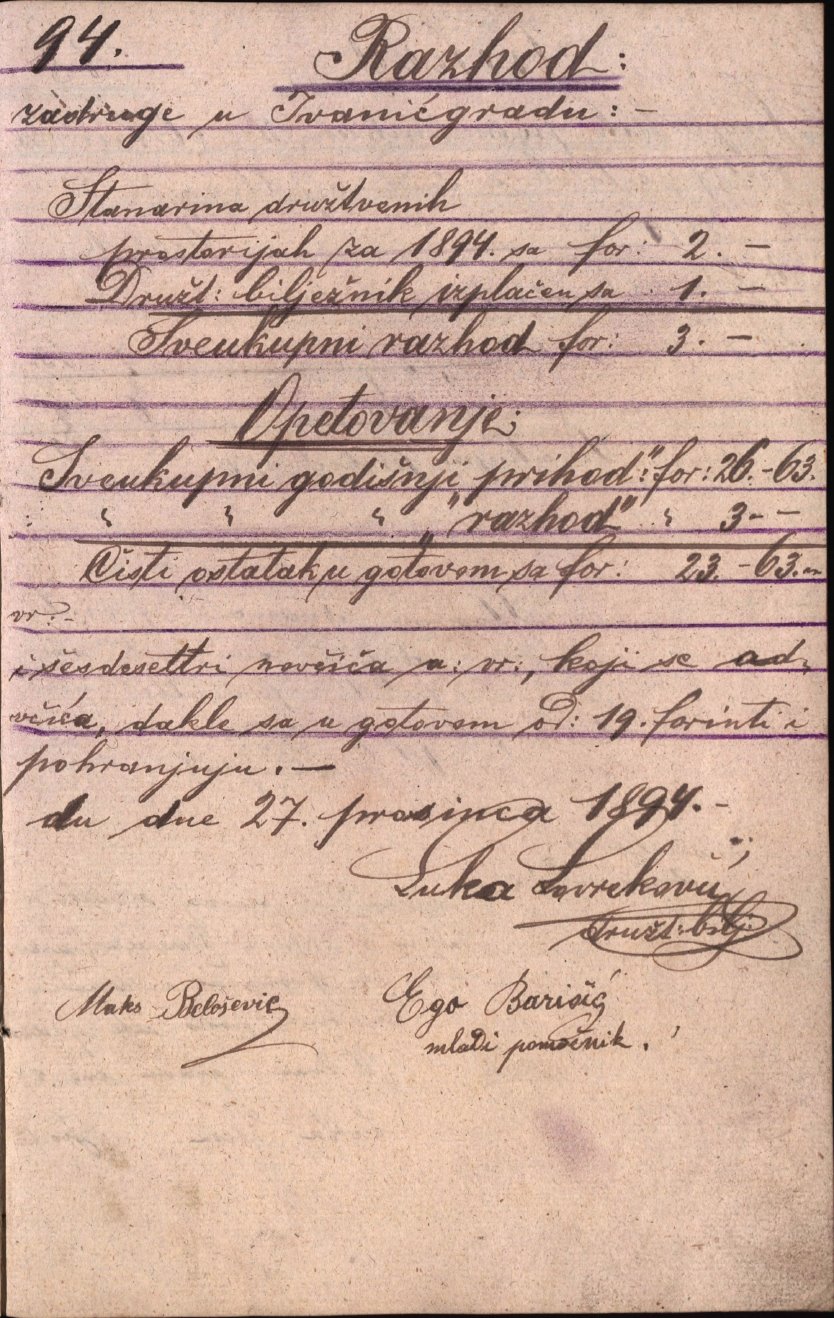 94. Razhod:
zadruge u Ivanićgradu: -
Stanarina družtvenih
prostorijah za 1894. sa for: 2. -
Družt: bilježnik izplačen sa 1. -
Sveukupni razhod for: 3. -
Opetovanje:
Sveukupni godišnji "prihod": for: 26. - 63.
: " " " "razhod" " 3 - -
Čisti ostatak u gotovom sa for: 23. - 63. n
vr: -
i šesdesettri novčića a: vr:, koji se ad-
včića, dakle sa u gotovom od: 19. forinti i
pohranjuju. -
du dne 27. prosinca 1894. -
Luka Lovreković,
družt: bilj:
Maks Belošević
Ego Barišić
mlađi pomoćnik.